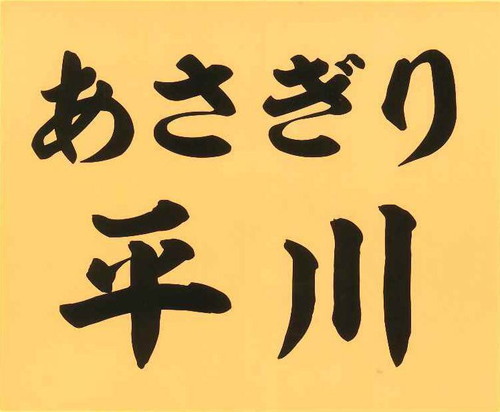 あさぎり
平川